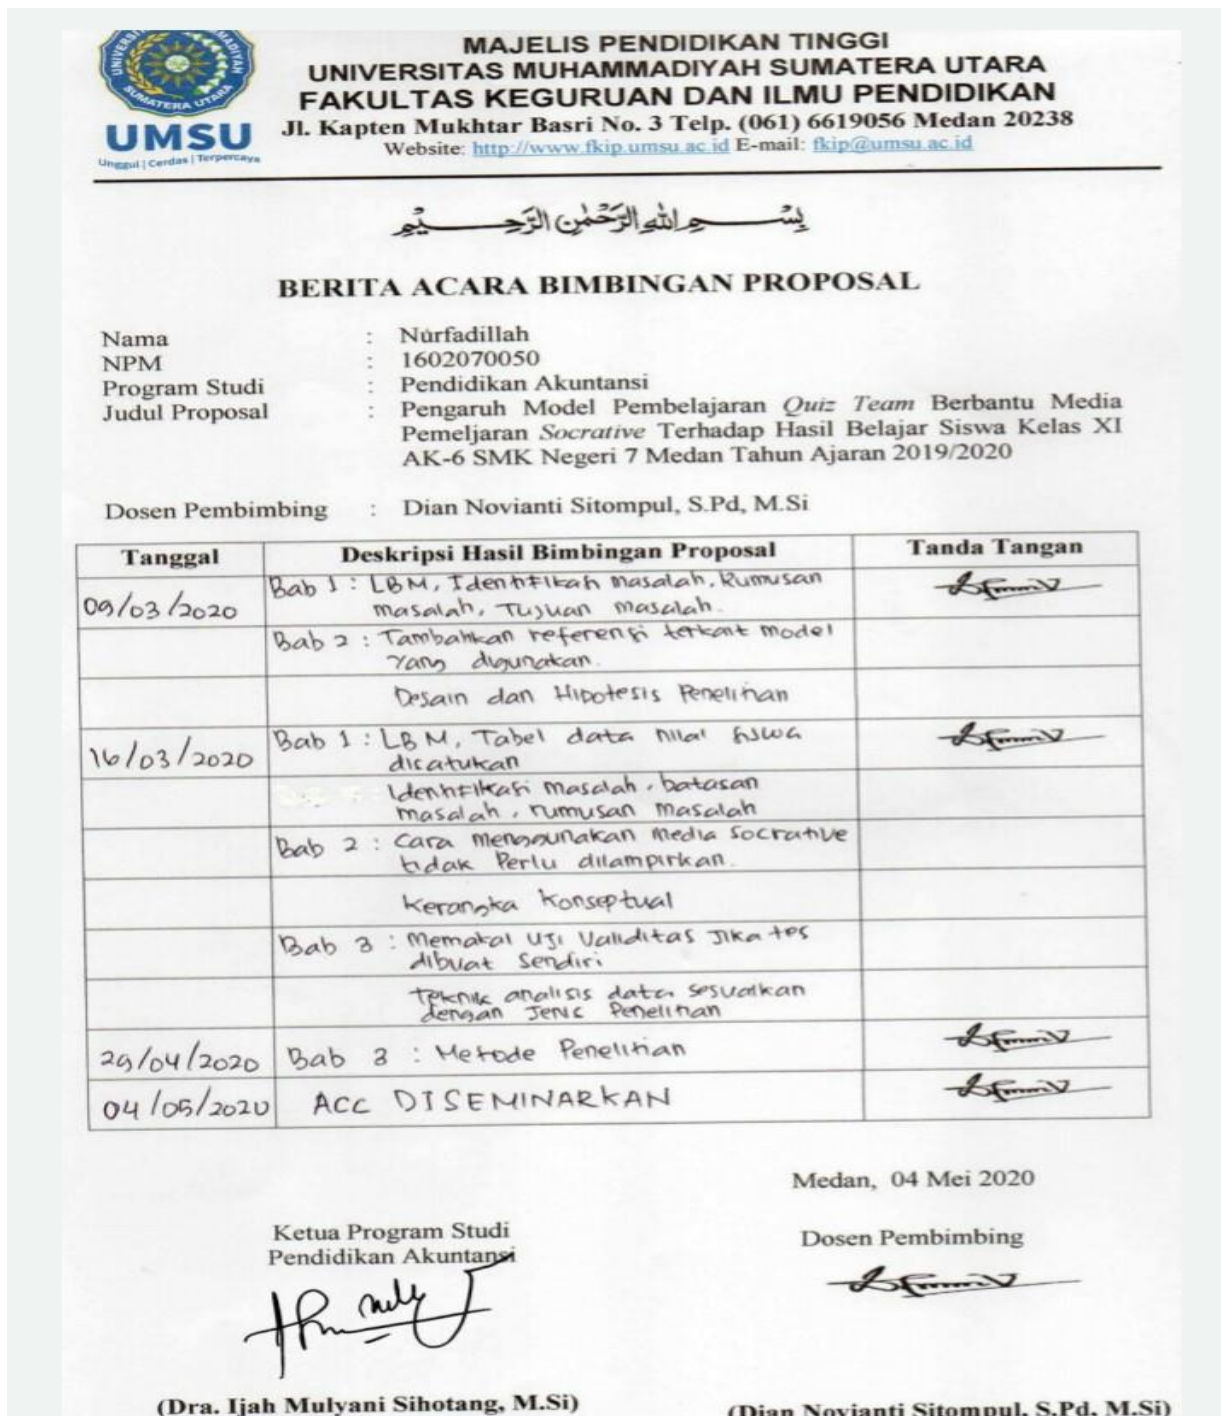 UNIVERSITAS MUHAMMADIYAH
SUMATERA UTARA
UMSU
Unggul | Cerdas | Terpercaya
MAJELIS PENDIDIKAN TINGGI
UNIVERSITAS MUHAMMADIYAH SUMATERA UTARA
FAKULTAS KEGURUAN DAN ILMU PENDIDIKAN
Jl. Kapten Mukhtar Basri No. 3 Telp. (061) 6619056 Medan 20238
Website: http://www.fkip.umsu.ac.id E-mail: fkip@umsu.ac.id
بِسْمِ اللهِ الرَّحْمٰنِ الرَّحِيْمِ
BERITA ACARA BIMBINGAN PROPOSAL
Nama : Nurfadillah
NPM : 1602070050
Program Studi : Pendidikan Akuntansi
Judul Proposal : Pengaruh Model Pembelajaran Quiz Team Berbantu Media
Pemeljaran Socrative Terhadap Hasil Belajar Siswa Kelas XI
AK-6 SMK Negeri 7 Medan Tahun Ajaran 2019/2020
Dosen Pembimbing : Dian Novianti Sitompul, S.Pd, M.Si
Tanggal Deskripsi Hasil Bimbingan Proposal Tanda Tangan
09/03/2020 Bab 1 : LBM, Identifikasi masalah, Rumusan
masalah, Tujuan masalah.
Bab 2 : Tambahkan referensi terkait model
yang digunakan.
Desain dan Hipotesis Penelitian
16/03/2020 Bab 1 : LBM, Tabel data nilai siswa
disatukan
Identifikasi masalah, batasan
masalah, rumusan masalah
Bab 2 : Cara menggunakan media Socrative
tidak Perlu dilampirkan.
Kerangka Konseptual
Bab 3 : Memakai uji Validitas Jika tes
dibuat Sendiri
Teknik analisis data sesuaikan
dengan Jenis Penelitian
29/04/2020 Bab 3 : Metode Penelitian
04/05/2020 ACC DISEMINARKAN
Medan, 04 Mei 2020
Ketua Program Studi
Pendidikan Akuntansi
Dosen Pembimbing
(Dra. Ijah Mulyani Sihotang, M.Si)
(Dian Novianti Sitompul, S.Pd, M.Si)